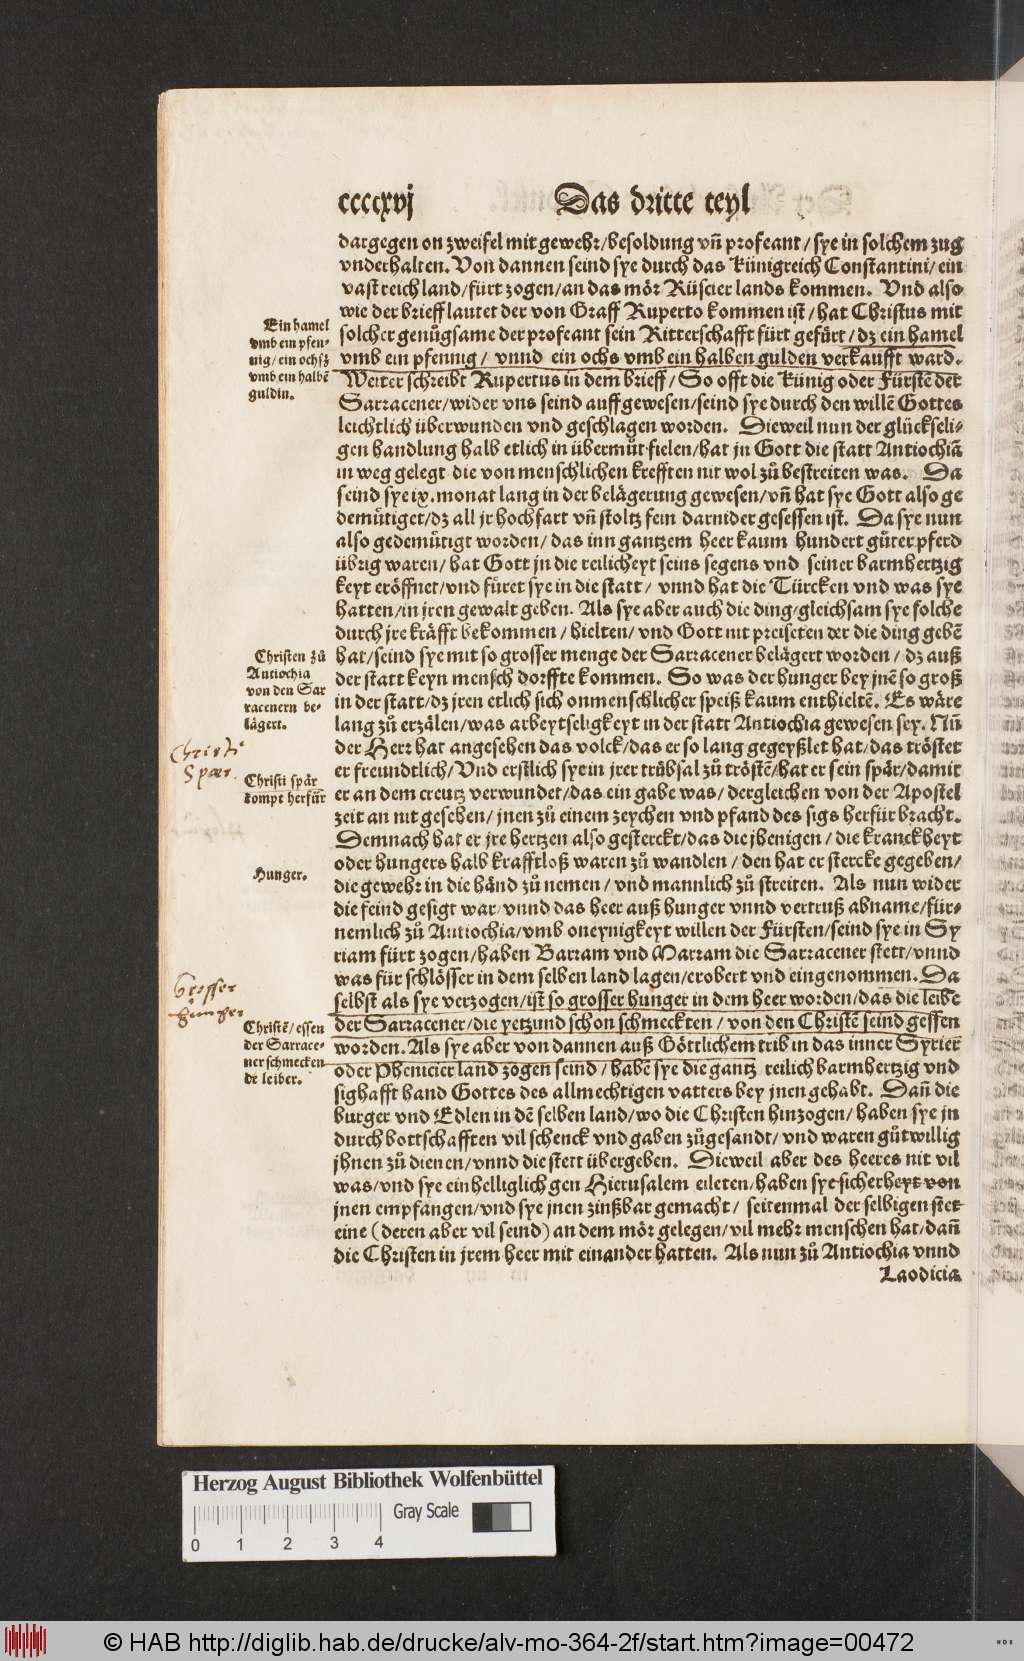 ccccxvj Das dritte teyl
dargegen on zweifel mit gewehr/besoldung vñ profeant/ sye in solchem zug
vnderhalten. Von dannen seind sye durch das Künigreich Constantini/ ein
vast reich land/fürt zogen/an das mör Rüscier lands kommen. Vnd also
wie der brieff lautet der von Graff Ruperto kommen ist/ hat Christus mit
solcher genůgsame der profeant sein Ritterschafft fürt gefürt/ dz ein hamel
vmb ein pfennig/ vnnd ein ochs vmb ein halben gulden verkaufft ward.
Weiter schreibt Rupertus in dem brieff/ So offt die Künig oder Fürstẽ der
Sarracener/wider vns seind auffgewesen/seind sye durch den willẽ Gottes
leichtlich überwunden vnd geschlagen worden. Dieweil nun der glückseli-
gen handlung halb etlich in übermůt fielen/hat jn Gott die statt Antiochiã
in weg gelegt die von menschlichen krefften nit wol zů bestreiten was. Da
seind sye ix. monat lang in der belägerung gewesen/vñ hat sye Gott also ge
demůtiget/dz all jr hochfart vñ stoltz fein darnider gesessen ist. Da sye nun
also gedemůtigt worden/ das inn gantzem heer kaum hundert gůter pferd
übrig waren/ hat Gott jn die reilicheyt seins segens vnd seiner barmhertzig
keyt eröffnet/vnd füret sye in die statt/ vnnd hat die Türcken vnd was sye
hatten/in jren gewalt geben. Als sye aber auch die ding/gleichsam sye solche
durch jre kräfft bekommen/ hielten/ vnd Gott nit preiseten der die ding gebẽ
hat/seind sye mit so grosser menge der Sarracener belägert worden/ dz auß
der statt keyn mensch dorffte kommen. So was der hunger bey jnẽ so groß
in der statt/dz jren etlich sich onmenschlicher speiß kaum enthieltẽ. Es wäre
lang zů erzälen/was arbeytseligkeyt in der statt Antiochia gewesen sey. Nũ
der Herr hat angesehen das volck/das er so lang gegeyßlet hat/das tröstet
er freundtlich/Vnd erstlich sye in jrer trübsal zů tröstẽ/hat er sein spär/damit
er an dem creutz verwundet/das ein gabe was/ dergleichen von der Apostel
zeit an nit gesehen/jnen zů einem zeychen vnd pfand des sigs herfür bracht.
Demnach hat er jre hertzen also gesterckt/das die jhenigen/ die kranckheyt
oder hungers halb krafftloß waren zů wandlen/ den hat er stercke gegeben/
die gewehr in die händ zů nemen/ vnd mannlich zů streiten. Als nun wider
die feind gesigt war/vnnd das heer auß hunger vnnd vertruß abname/für-
nemlich zů Antiochia/vmb oneynigkeyt willen der Fürsten/seind sye in Sy
riam fürt zogen/haben Barram vnd Marram die Sarracener stett/vnnd
was für schlösser in dem selben land lagen/erobert vnd eingenommen. Da
selbst als sye verzogen/ist so grosser hunger in dem heer worden/das die leibe
der Sarracener/die yetzund schon schmeckten/ von den Christẽ seind gessen
worden. Als sye aber von dannen auß Göttlichem trib in das inner Syrier
oder Phenicier land zogen seind/ habẽ sye die gantz reilich barmhertzig vnd
sighafft hand Gottes des allmechtigen vatters bey jnen gehabt. Dañ die
burger vnd Edlen in dẽ selben land/wo die Christen hinzogen/ haben sye jn
durch bottschafften vil schenck vnd gaben zůgesandt/ vnd waren gůtwillig
jhnen zů dienen/vnnd die stett übergeben. Dieweil aber des heeres nit vil
was/vnd sye einhelliglich gen Hierusalem eileten/haben sye sicherheyt von
jnen empfangen/vnd sye jnen zinßbar gemacht/ seitenmal der selbigen stet
eine (deren aber vil seind) an dem mör gelegen/vil mehr menschen hat/dañ
die Christen in jrem heer mit einander hatten. Als nun zů Antiochia vnnd
Laodicia
Ein hamel
vmb ein pfen-
nig/ein ochsz
vmb ein halbẽ
guldin.
Christen zů
Antiochia
von den Sar
racenern be-
lägert.
Christi
Spaer.
Christi spär
kompt herfür
Hunger.
Grosser
hunger
Christẽ/essen
der Sarrace-
ner schmecken
de leiber.
Herzog August Bibliothek Wolfenbüttel
Gray Scale
0 1 2 3 4
© HAB http://diglib.hab.de/drucke/alv-mo-364-2f/start.htm?image=00472